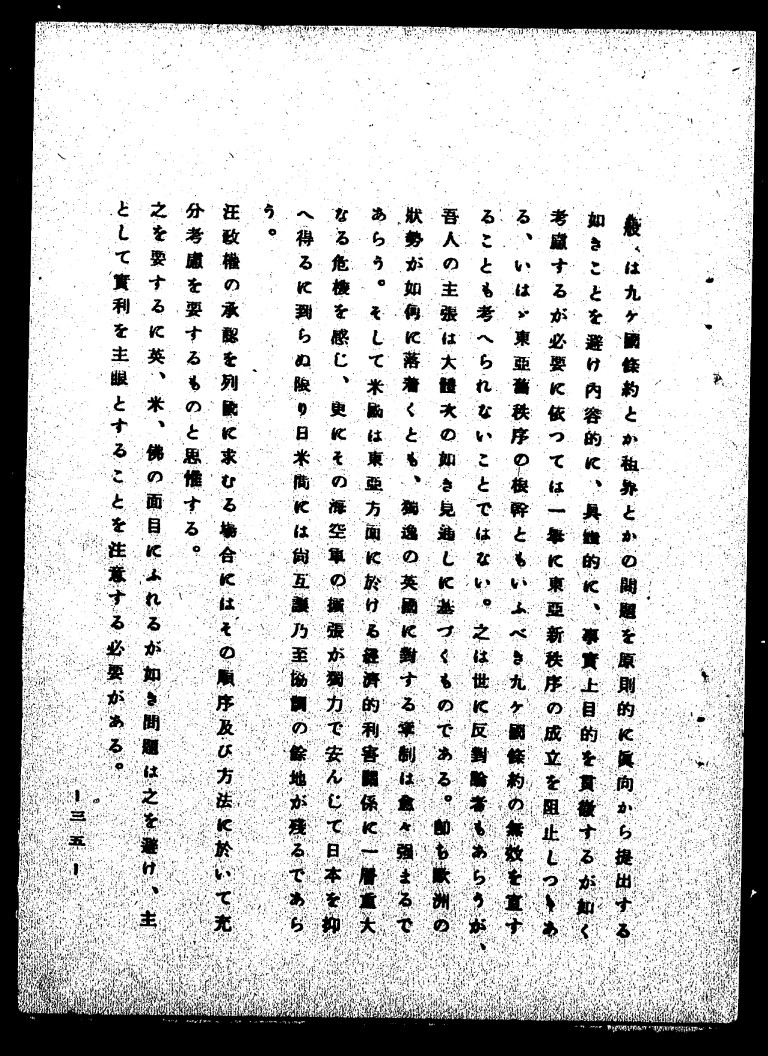 般、は九ケ國條約とか租界とかの問題を原則的に眞向から提出する
如きことを避け内容的に、具體的に、事實上目的を貫徹するが如く
考慮するが必要に依つては一擧に東亞新秩序の成立を阻止しつゝあ
る、いはゞ東亞舊秩序の根幹ともいふべき九ケ國條約の無效を宣す
ることも考へられないことではない。之は世に反對論者もあらうが、
吾人の主張は大體次の如き見通しに基づくものである。卽ち歐洲の
狀勢が如何に落着くとも、獨逸の英國に對する牽制は愈々强まるで
あらう。そして米國は東亞方面に於ける經濟的利害關係に一層重大
なる危機を感じ、更にその海空軍の擴張が獨力で安んじて日本を抑
へ得るに到らぬ限り日米間には尙互讓乃至協調の餘地が殘るであら
う。
汪政權の承認を列國に求むる場合にはその順序及び方法に於いて充
分考慮を要するものと思惟する。
之を要するに英、米、佛の面目にふれるが如き問題は之を避け、主
として實利を主眼とすることを注意する必要がある。
―三五―